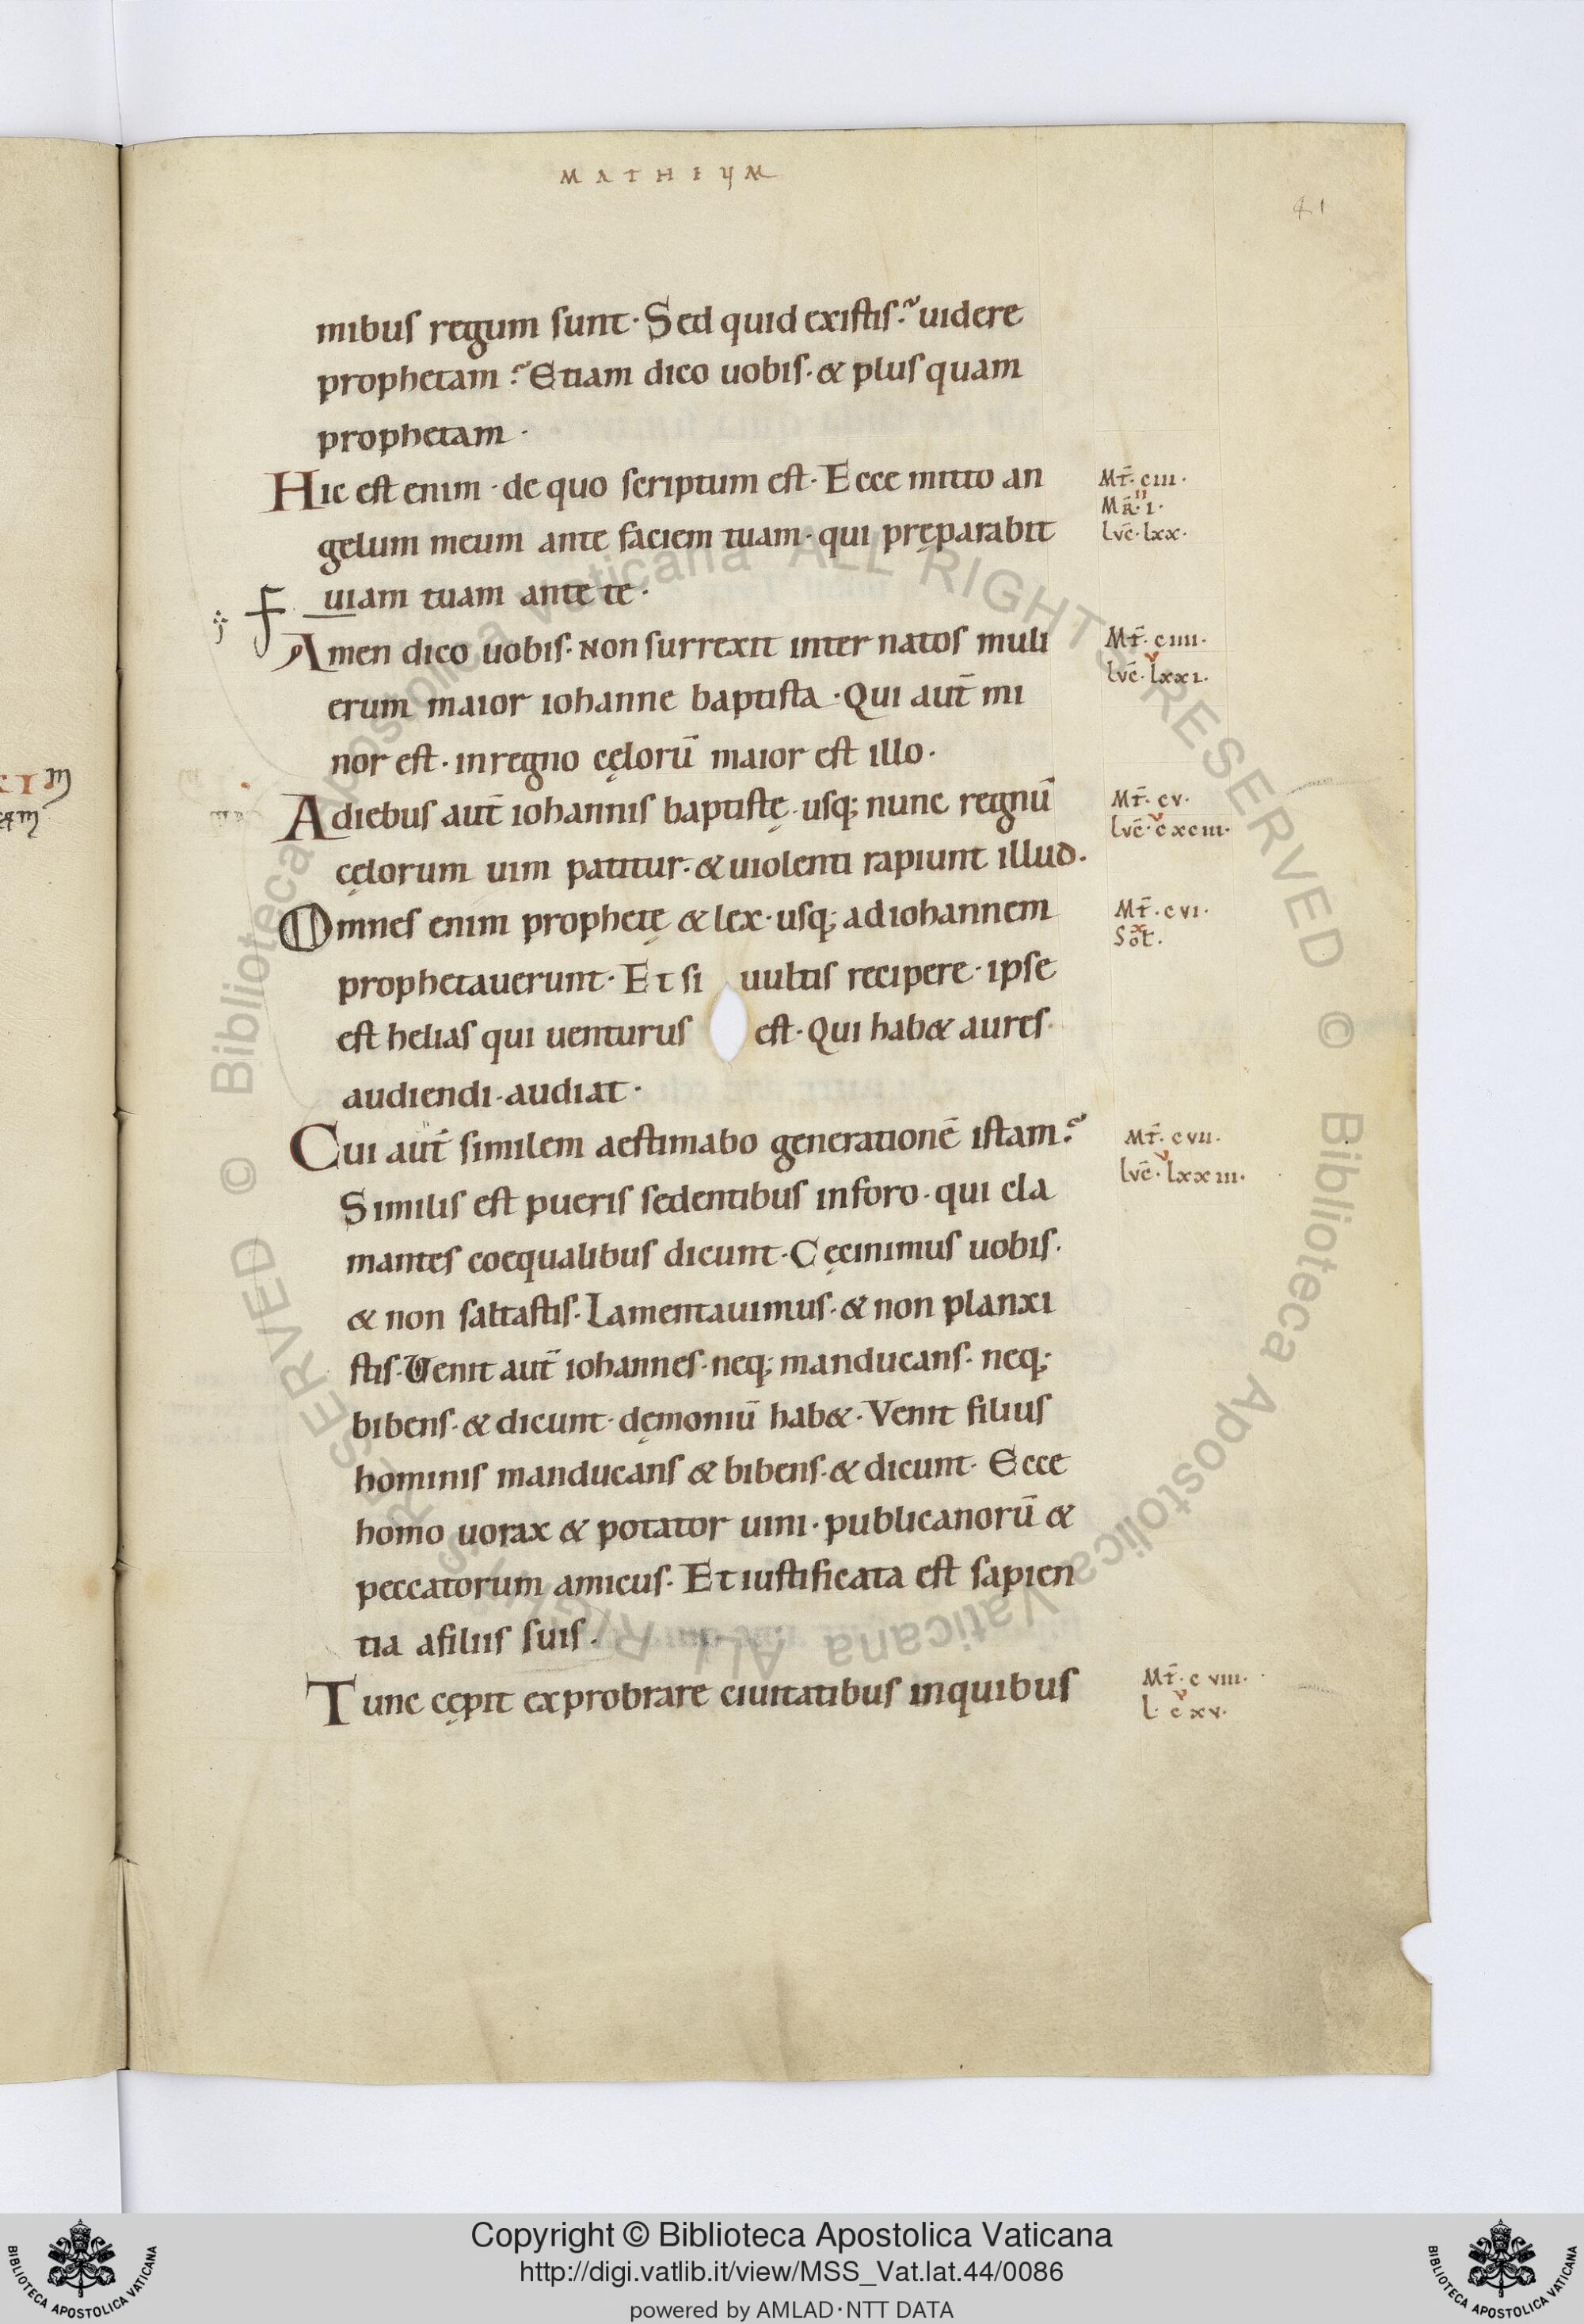 MATHEUM
41
mibus regum sunt· Sed quid existis? uidere
prophetam? Etiam dico uobis· & plus quam
prophetam·
Hic est enim· de quo scriptum est· Ecce mitto an
gelum meum ante faciem tuam· qui pręparabit
uiam tuam ante te·
Amen dico uobis· non surrexit inter natos muli
erum maior iohanne baptista· Qui aut̄ mi
nor est· in regno cęlorū maior est illo·
A diebus aut̄ iohannis baptistę· usq; nunc regnū
cęlorum uim patitur· & uiolenti rapiunt illud·
Omnes enim prophetę & lex· usq; ad iohannem
prophetauerunt· Et si uultis recipere· ipse
est helias qui uenturus est· Qui hab& aures
audiendi· audiat·
Cui aut̄ similem aestimabo generationē istam?
Similis est pueris sedentibus in foro· qui cla
mantes coequalibus dicunt· Cęcinimus uobis·
& non saltastis· Lamentauimus· & non planxi
stis· Venit aut̄ iohannes· neq; manducans· neq;
bibens· & dicunt· dęmoniū hab&· Venit filius
hominis manducans & bibens· & dicunt· Ecce
homo uorax & potator uini· publicanorū &
peccatorum amicus· Et iustificata est sapien
tia a filiis suis·
Tunc cępit exprobrare ciuitatibus in quibus
Mt̄· ciii·
II
Mr̄· i·
Luc̄· lxx·
Mt̄· ciiii·
V
Luc̄· lxxi·
Mt̄· cv·
V
Luc̄· cxciii·
Mt̄· cvi·
X
Sot̄·
Mt̄· cvii·
V
Luc̄· lxxiii·
Mt̄· cviii·
V
L· cxv·
© Biblioteca Apostolica Vaticana ALL RIGHTS RESERVED © Biblioteca Apostolica Vaticana ALL RIGHTS RESERVED
Copyright © Biblioteca Apostolica Vaticana
http://digi.vatlib.it/view/MSS_Vat.lat.44/0086
powered by AMLAD·NTT DATA
BIBLIOTECA APOSTOLICA VATICANA
BIBLIOTECA APOSTOLICA VATICANA